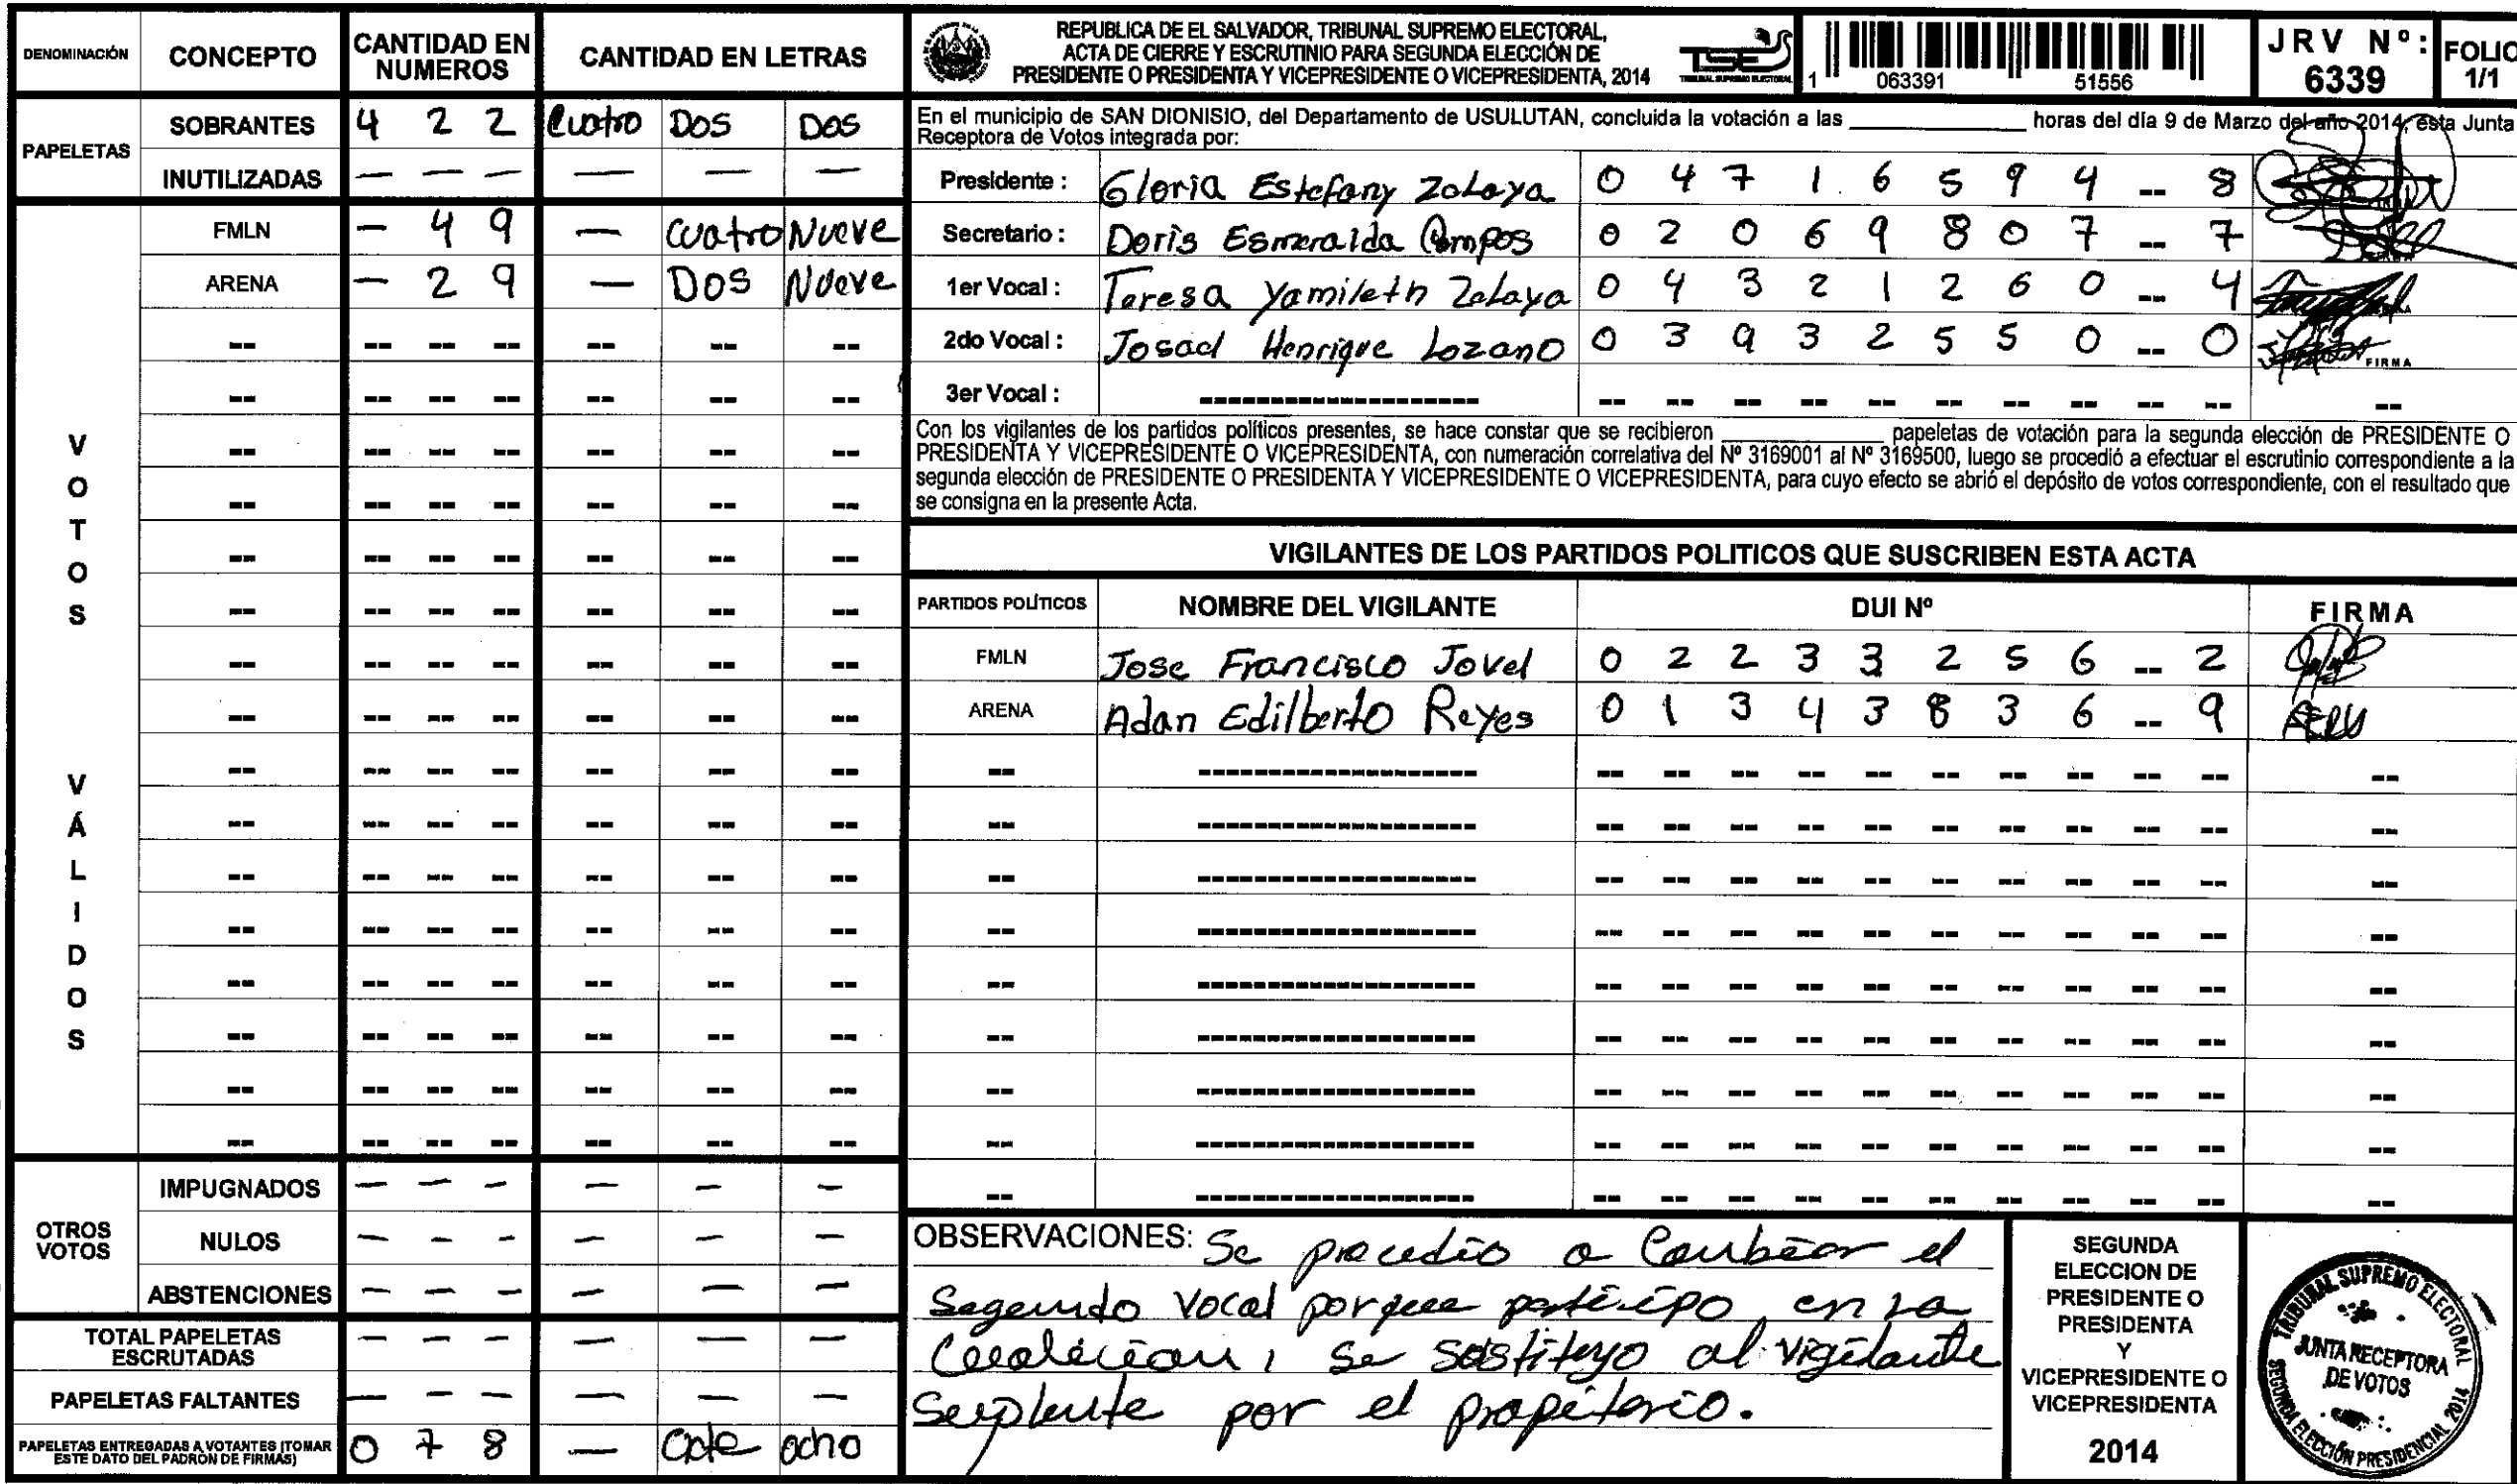 DENOMINACIÓN CONCEPTO CANTIDAD EN NUMEROS CANTIDAD EN LETRAS
PAPELETAS
SOBRANTES 4 2 2 Cuatro Dos Dos
INUTILIZADAS — — — — — —
VOTOS VÁLIDOS
FMLN — 4 9 — cuatro Nueve
ARENA — 2 9 — Dos Nueve
OTROS VOTOS
IMPUGNADOS — — — — — —
NULOS — — — — — —
ABSTENCIONES — — — — — —
TOTAL PAPELETAS ESCRUTADAS — — — — — —
PAPELETAS FALTANTES — — — — — —
PAPELETAS ENTREGADAS A VOTANTES (TOMAR ESTE DATO DEL PADRÓN DE FIRMAS) 0 7 8 — ocho
REPUBLICA DE EL SALVADOR, TRIBUNAL SUPREMO ELECTORAL,
ACTA DE CIERRE Y ESCRUTINIO PARA SEGUNDA ELECCIÓN DE
PRESIDENTE O PRESIDENTA Y VICEPRESIDENTE O VICEPRESIDENTA, 2014
TSE
TRIBUNAL SUPREMO ELECTORAL
1 063391 51556
JRV Nº: 6339
FOLIO 1/1
En el municipio de SAN DIONISIO, del Departamento de USULUTAN, concluida la votación a las ____ horas del día 9 de Marzo del año 2014, esta Junta
Receptora de Votos integrada por:
Presidente : Gloria Estefany Zelaya 0 4 7 1 6 5 9 4 -- 8
Secretario : Doris Esmeralda Campos 0 2 0 6 9 8 0 7 -- 7
1er Vocal : Teresa Yamileth Zelaya 0 4 3 2 1 2 6 0 -- 4
2do Vocal : Josael Henrique Lozano 0 3 9 3 2 5 5 0 -- 0 FIRMA
3er Vocal : -- --
Con los vigilantes de los partidos políticos presentes, se hace constar que se recibieron ____ papeletas de votación para la segunda elección de PRESIDENTE O
PRESIDENTA Y VICEPRESIDENTE O VICEPRESIDENTA, con numeración correlativa del Nº 3169001 al Nº 3169500, luego se procedió a efectuar el escrutinio correspondiente a la
segunda elección de PRESIDENTE O PRESIDENTA Y VICEPRESIDENTE O VICEPRESIDENTA, para cuyo efecto se abrió el depósito de votos correspondiente, con el resultado que
se consigna en la presente Acta.
VIGILANTES DE LOS PARTIDOS POLITICOS QUE SUSCRIBEN ESTA ACTA
PARTIDOS POLÍTICOS NOMBRE DEL VIGILANTE DUI Nº FIRMA
FMLN Jose Francisco Jovel 0 2 2 3 3 2 5 6 -- 2
ARENA Adan Edilberto Reyes 0 1 3 4 3 8 3 6 -- 9
OBSERVACIONES: Se procedio a Cambiar el
Segundo Vocal porque participo en la
se sustituyo al vigilante
Suplente por el propietario.
SEGUNDA
ELECCION DE
PRESIDENTE O
PRESIDENTA
Y
VICEPRESIDENTE O
VICEPRESIDENTA
2014
TRIBUNAL SUPREMO ELECTORAL
JUNTA RECEPTORA
DE VOTOS
SEGUNDA ELECCIÓN PRESIDENCIAL 2014